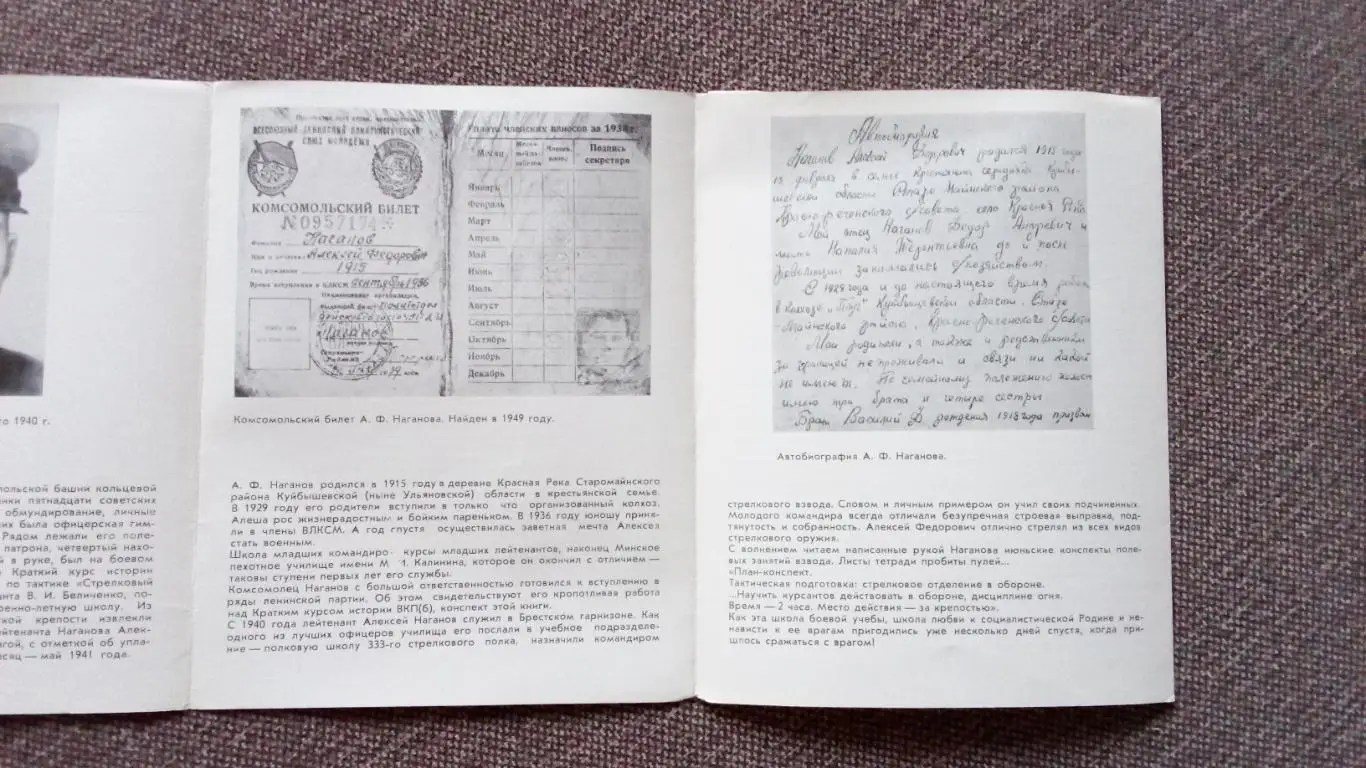 то 1940 г.
польской башни кольцевой
анки пятнадцати советских
обмундирование, личные
них была офицерская гим-
Рядом лежали его поле-
патрона, четвертый нахо-
й в руке, был на боевом
Краткий курс истории
по тактике «Стрелковый
нта В. И. Беличенко, по-
ренно-летную школу. Из
ской крепости извлекли
йтенанта Наганова Алек-
гой, с отметкой об упла-
сяц — май 1941 года.
ВСЕСОЮЗНЫЙ ЛЕНИНСКИЙ КОММУНИСТИЧЕСКИЙ
СОЮЗ МОЛОДЕЖИ
КОМСОМОЛЬСКИЙ БИЛЕТ
№0957174
Фамилия Наганов
Имя и отчество Алексей Федорович
Год рождения 1915
Время вступления в ВЛКСМ сентябрь 1936
Наименование организации,
Наганов
Уплата членских взносов за 1938 г.
Месяц
Членск. взнос
Подпись секретаря
Январь
Февраль
Март
Апрель
Май
Июнь
Июль
Август
Сентябрь
Октябрь
Ноябрь
Декабрь
Комсомольский билет А. Ф. Наганова. Найден в 1949 году.
А. Ф. Наганов родился в 1915 году в деревне Красная Река Старомайнского
района Куйбышевской (ныне Ульяновской) области в крестьянской семье.
В 1929 году его родители вступили в только что организованный колхоз.
Алеша рос жизнерадостным и бойким пареньком. В 1936 году юношу приня-
ли в члены ВЛКСМ. А год спустя осуществилась заветная мечта Алексея
стать военным.
Школа младших командиро- курсы младших лейтенантов, наконец Минское
пехотное училище имени М. И. Калинина, которое он окончил с отличием —
таковы ступени первых лет его службы.
Комсомолец Наганов с большой ответственностью готовился к вступлению в
ряды ленинской партии. Об этом свидетельствуют его кропотливая работа
над Кратким курсом истории ВКП(б), конспект этой книги.
С 1940 года лейтенант Алексей Наганов служил в Брестском гарнизоне. Как
одного из лучших офицеров училища его послали в учебное подразделе-
ние — полковую школу 333-го стрелкового полка, назначили командиром
Автобиография
Наганов Алексей Федорович родился 1915 года
15 февраля в семье крестьянина середняка Куйбы-
шевской области Старо Майнского района
Красно-реченского с/совета село Красная Река.
Мой отец Наганов Федор Андреевич и
мать Наталия Терентьевна до и после
революции занимались с/хозяйством.
С 1929 года и до настоящего время работ
в колхозе Куйбышевской области, Старо
Майнского района, Красно-реченского с/совета
Мои родители, а также и родственники
за границей не проживали и связи ни какой
не имеют. По семейному положению холост
имею три брата и четыре сестры
Брат Василий Ф. рождения 1918 года призван
Автобиография А. Ф. Наганова.
стрелкового взвода. Словом и личным примером он учил своих подчиненных.
Молодого командира всегда отличали безупречная строевая выправка, под-
тянутость и собранность. Алексей Федорович отлично стрелял из всех видов
стрелкового оружия.
С волнением читаем написанные рукой Наганова июньские конспекты поле-
вых занятий взвода. Листы тетради пробиты пулей...
«План-конспект.
Тактическая подготовка: стрелковое отделение в обороне.
...Научить курсантов действовать в обороне, дисциплине огня.
Время — 2 часа. Место действия — за крепостью».
Как эта школа боевой учебы, школа любви к социалистической Родине и не-
нависти к ее врагам пригодились уже несколько дней спустя, когда при-
шлось сражаться с врагом!